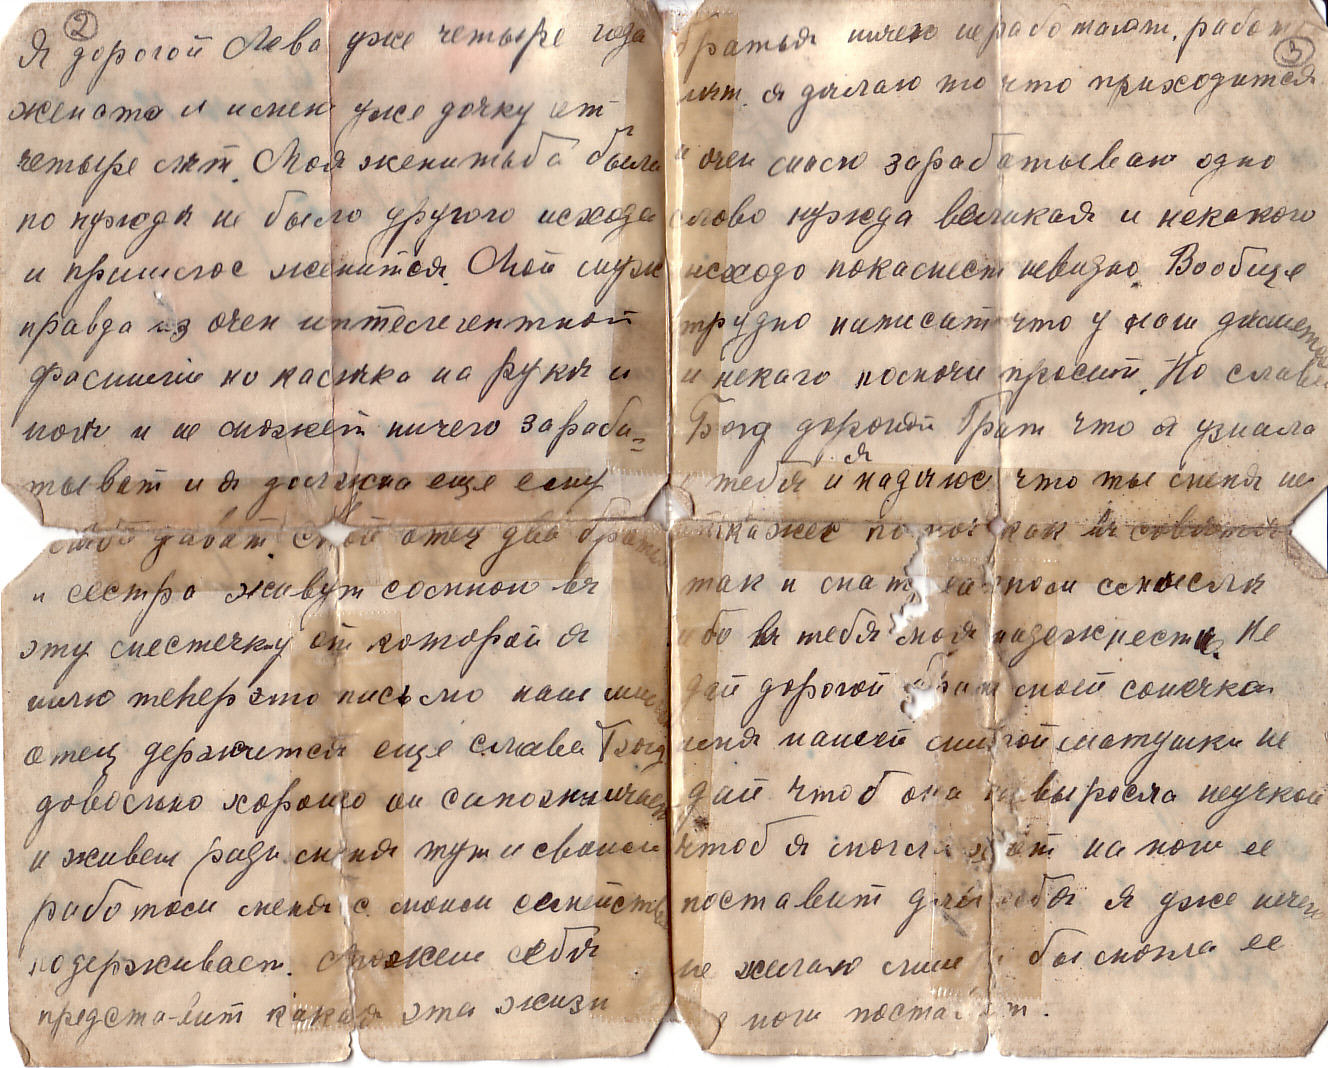 2
Я дорогой Лева уже четыре года
жената и имею уже дочку от
четыре лет. Моя женитьба была
по нужди не было другого исхода
и пришлос женится. Мой муж
правда из очен интелегентной
фамилии но калека на руки и
ноги и не может ничего зараба=
тыват и я должна еще ему
давать. Мой отец два братья
и сестра живут сомною въ
эту местечку от которой я
пишу теперь это письмо наш
отец держится еще слава Богу
довольно хорошо он сапожничает
и живет ради меня тут и своим
работом меня с моим семейством
подерживает. Можеш себя
представит какая эта жизн
3
братья ничего не работают. работ
нет. я делаю то что приходится
и очен мало зарабатываю одно
слово нужда великая и некакого
исходо покамест невидно. Вообще
трудно написат что у нас делается
и некаго помочи просит. Но слава
Богу дорогой Брат что я узнала
о тебя и я надеюс что ты меня не
откажеш помоч как въ советом
так и смыслъ
ибо въ тебя моя надежнести. Не
дай дорогой брат моей сонечка
имя нашей милой матушки не
дай чтоб она не выросла неучкой
чтоб я могла хот на ноги ее
поставит для себя я уже нечего
не желаю лиш бы могла ее
ноги поставит.